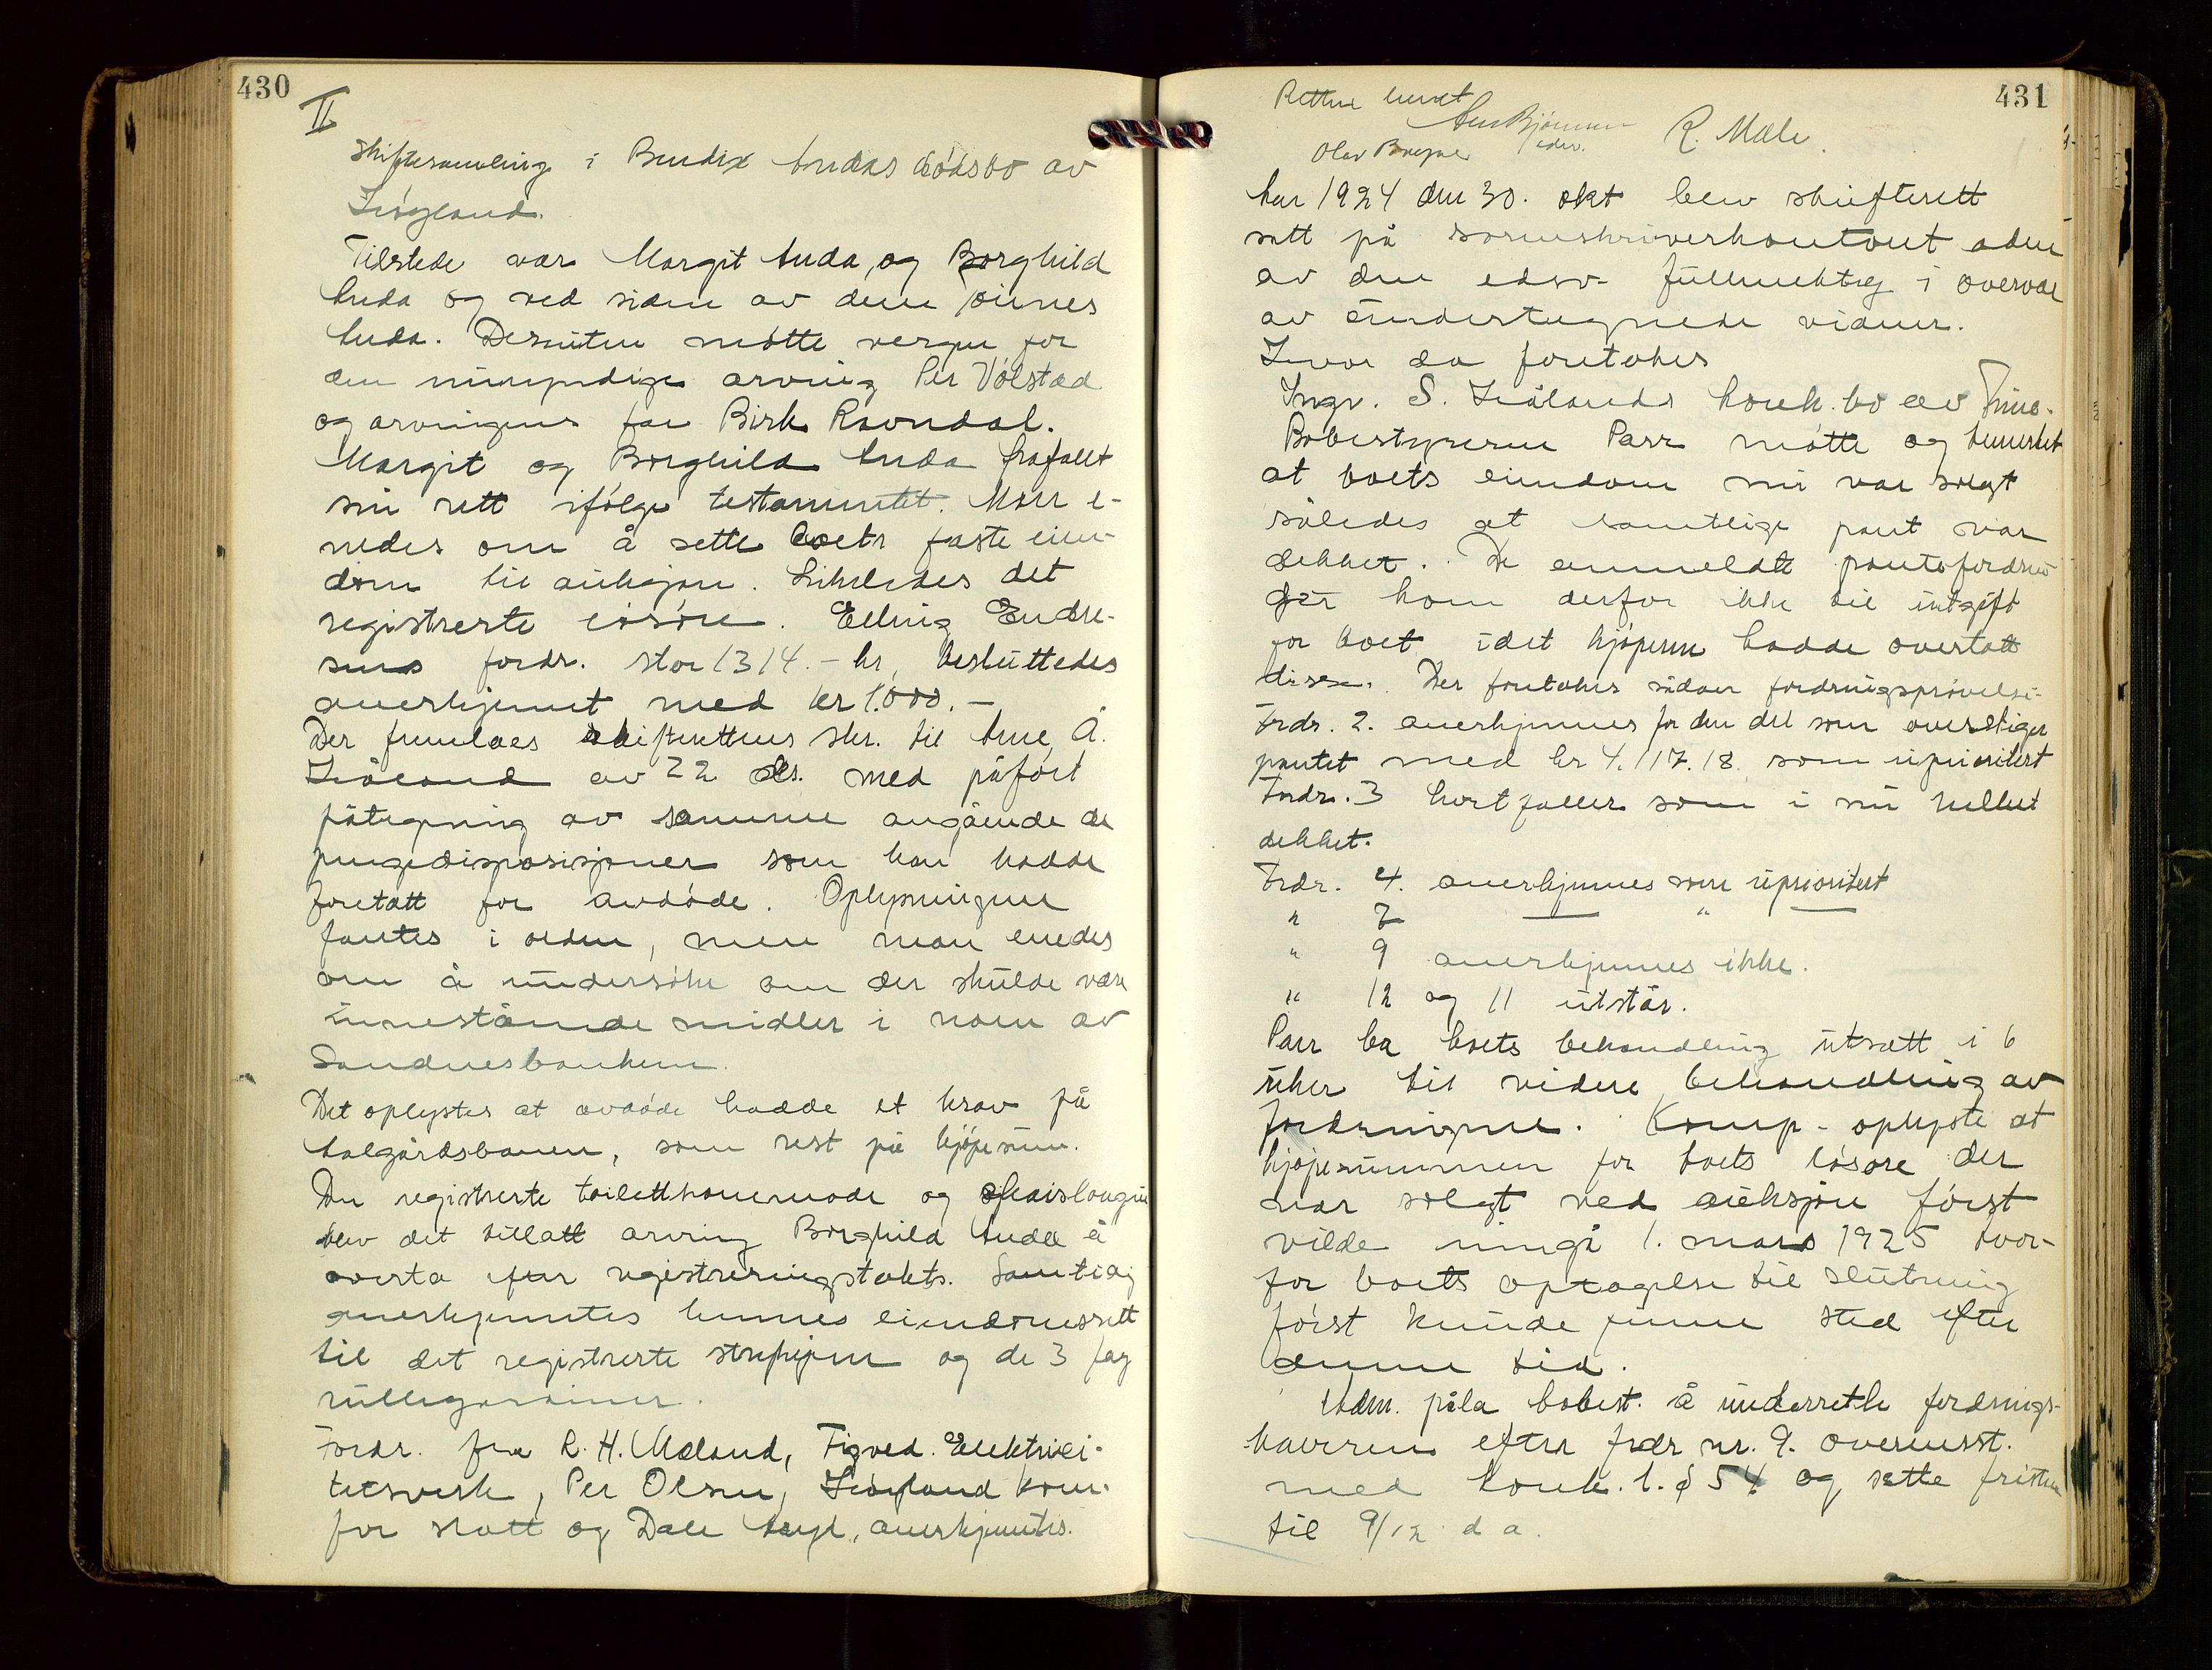 430
II
Skiftesamling i Bendix Andas dødsbo av
Tilstede var Margit Anda, og Borghild
Anda og ved siden av dem
Anda. Desuten møtte vergen for
den umyndige arving Per Vølstad
og arvingens far Birk Ravndal.
Margit og Borghild Anda frafallt
sin rett ifølge testamentet. Man e-
nedes om å sette boets faste eien-
dom til auksjon. Likeledes det
registrerte løsøre. Elling Endre-
sens fordr. stor 1314.- kr, besluttedes
anerkjennt med kr 1.000.-
Der fremlaes skifterettens skr. til Arne Å.
av 22 ds. med påført
påtegning av samme angående de
pengedisposisjoner som han hadde
foretatt for avdøde. Oplysningene
fantes i orden, men man enedes
om å undersøke om der skulde være
innestående midler i noen av
Sandnesbankene.
Det oplystes at avdøde hadde et krav på
Ålgårdsbanen, som rest på kjøpesum.
Den registrerte toilettkommode og chaislongue
blev det tillatt arving Borghild Anda å
overta efter registreringstakst. Samtidig
anerkjenntes hennes eiendomsrett
til det registrerte strykejern og de 3 fag
rullegardiner.
Fordr. fra R. H. Mæland, Figved Elektrici-
tetsverk, Per Olsen, Høyland kom.
for skatt og Dale Asyl, anerkjenntes.
431
Retten hevet
R. Mæle.
Olav
Aar 1924 den 30. okt blev skifterett
satt på sorenskriverkontoret adm
av den edsv. fullmektig i overvær
av undertegnede vidner.
Hvor da foretokes
Ingv. S. Hålands konk.bo av Time.
Bobestyreren Parr møtte og bemerket
at boets eiendom nu var solgt
således at samtlige pant var
dekket. De anmeldte pantefordrin-
ger kom derfor ikke til utgift
for boet idet kjøperen hadde overtatt
disse. Der foretokes sådan fordringsprøvelse:
Fordr. 2. anerkjennes for den del som overstiger
pantet med kr 4.117.18 som uprioritert
Fordr. 3 bortfaller som i nu hellet
dekket.
Fordr. 4. anerkjennes som uprioritert
" 7 — " —
" 9 anerkjennes ikke.
" 12 og 11 utstår.
Parr ba boets behandling utsatt i 6
uker til videre behandling av
fordringene. Komp. oplyste at
kjøpesummen for boets løsøre der
var solgt ved auksjon først
vilde inngå 1. mars 1925 hvor-
for boets optagelse til slutning
først kunde finne sted efter
denne tid.
Adm. påla bobest. å underrette fordrings-
haveren efter fordr nr. 9. overensst.
med konk. l. § 54 og sette fristen
til 9/12 d a.